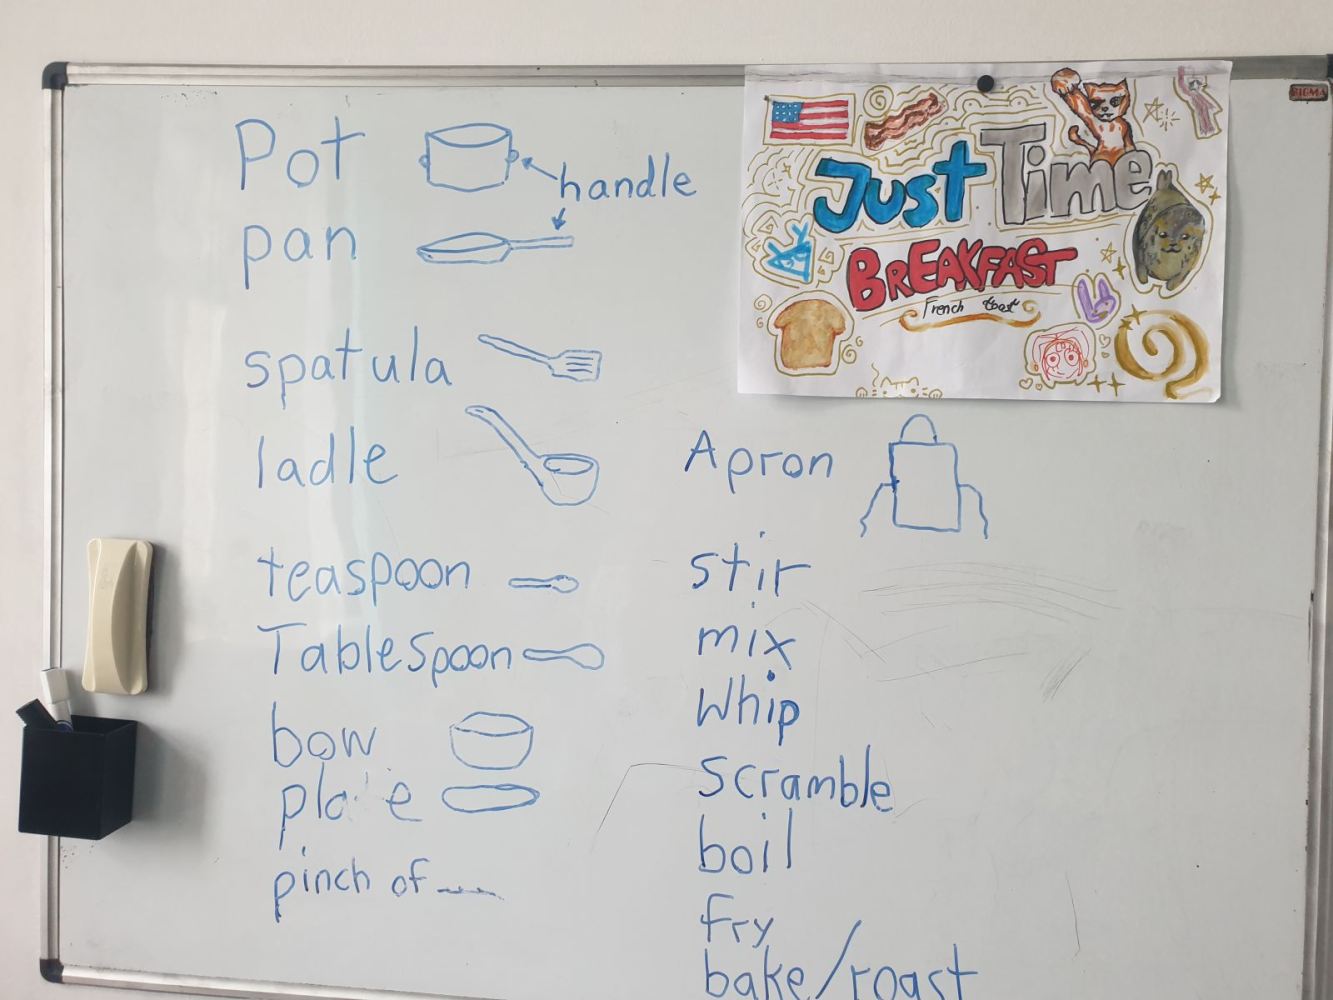 Pot
handle
pan
spatula
ladle
teaspoon
TableSpoon
bow
pinch of
SIGMA
Just Time
BREAKFAST
French toast
Apron
stir
mix
Whip
scramble
boil
fry
bake/roast